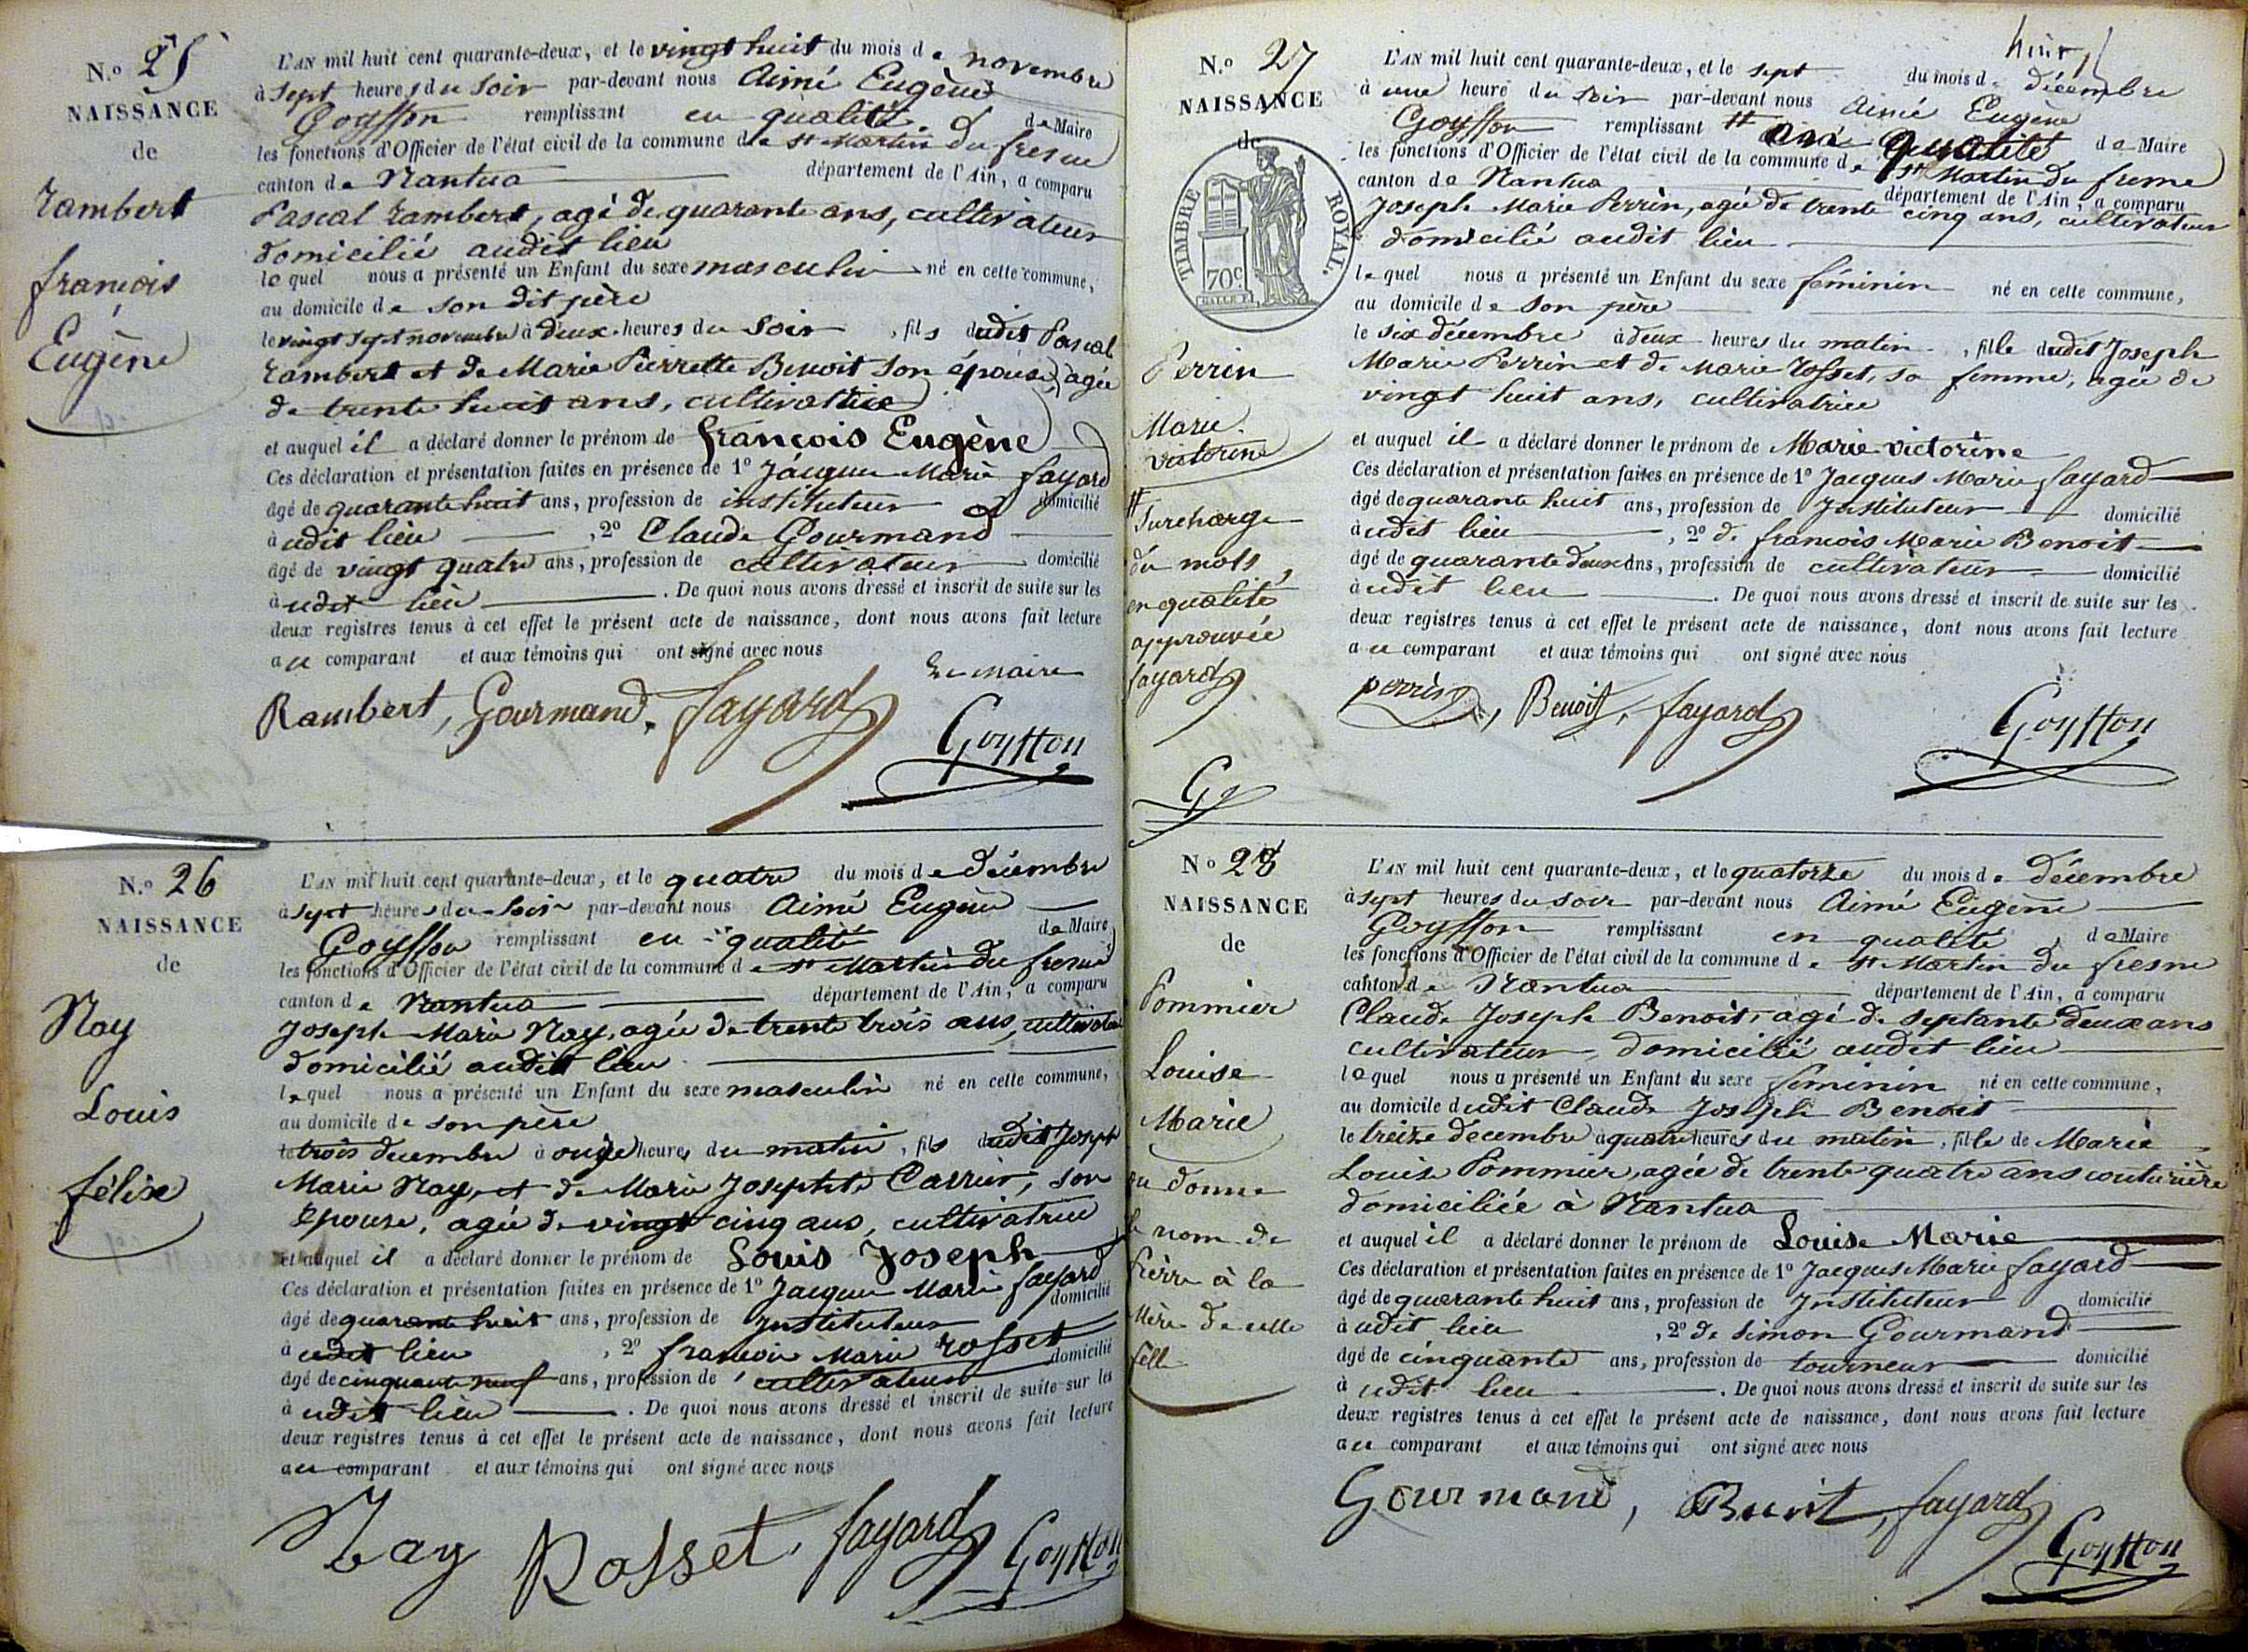 N.o 25
NAISSANCE
de
Rambert
françois
Eugène
L'AN mil huit cent quarante-deux, et le vingt huit du mois de novembre
à sept heures du soir par-devant nous Aimé Eugène
Goyffon remplissant en qualité de Maire
les fonctions d'Officier de l'état civil de la commune de st Martin du fresne
canton de Nantua département de l'Ain, a comparu
Pascal Rambert, agé de quarante ans, cultivateur
domicilié audit lieu
lequel nous a présenté un Enfant du sexe masculin né en cette commune,
au domicile de son dit père
le vingt sept novembre à deux heures du soir, fils dudit Pascal
Rambert et de Marie Pierrette Benoit son épouse, agée
de trente huit ans, cultivatrice
et auquel il a déclaré donner le prénom de françois Eugène
Ces déclaration et présentation faites en présence de 1o Jacques Marie fayard
âgé de quarante huit ans, profession de instituteur domicilié
audit lieu, 2o Claude Gourmand
âgé de vingt quatre ans, profession de cultivateur domicilié
audit lieu. De quoi nous avons dressé et inscrit de suite sur les
deux registres tenus à cet effet le présent acte de naissance, dont nous avons fait lecture
au comparant et aux témoins qui ont signé avec nous
Le Maire
Rambert, Gourmand, fayard
Goyffon
N.o 26
NAISSANCE
de
Nay
Louis
félix
L'AN mil huit cent quarante-deux, et le quatre du mois de décembre
à sept heures du soir par-devant nous Aimé Eugène
Goyffon remplissant en qualité de Maire
les fonctions d'Officier de l'état civil de la commune de st Martin du fresne
canton de Nantua département de l'Ain, a comparu
Joseph Marie Nay, agée de trente trois ans, cultivateur
domicilié audit lieu
lequel nous a présenté un Enfant du sexe masculin né en cette commune,
au domicile de son père
le trois decembre à onze heures du matin, fils dudit Joseph
Marie Nay, et de Marie Josephte Carrier, son
Epouse, agée de vingt cinq ans, cultivatrice
et auquel il a déclaré donner le prénom de Louis Joseph
Ces déclaration et présentation faites en présence de 1o Jacques Marie fayard
âgé de quarante huit ans, profession de Instituteur domicilié
audit lieu, 2o francois Marie rosset
âgé de cinquante neuf ans, profession de cultivateur domicilié
audit lieu. De quoi nous avons dressé et inscrit de suite sur les
deux registres tenus à cet effet le présent acte de naissance, dont nous avons fait lecture
au comparant et aux témoins qui ont signé avec nous
Nay Rosset, fayard Goyffon
N.o 27
NAISSANCE
de
TIMBRE ROYAL.
70c
Perrin
Marie
victorine
# Surcharge
du mots,
en qualité
approuvée
fayard
G
L'AN mil huit cent quarante-deux, et le sept du mois de décembre
à une heure du soir par-devant nous Aimé Eugène
Goyffon remplissant # en qualité de Maire
les fonctions d'Officier de l'état civil de la commune de st Martin du fresne
canton de Nantua département de l'Ain, a comparu
Joseph Marie Perrin, agé de trente cinq ans, cultivateur
domicilié audit lieu
lequel nous a présenté un Enfant du sexe féminin né en cette commune,
au domicile de son père
le six décembre à deux heures du matin, fille dudit Joseph
Marie Perrin et de Marie Rosset, sa femme, agée de
vingt huit ans, cultivatrice
et auquel il a déclaré donner le prénom de Marie victorine
Ces déclaration et présentation faites en présence de 1o Jacques Marie fayard
âgé de quarante huit ans, profession de Instituteur domicilié
audit lieu, 2o de francois Marie Benoit
âgé de quarante deux ans, profession de cultivateur domicilié
audit lieu. De quoi nous avons dressé et inscrit de suite sur les
deux registres tenus à cet effet le présent acte de naissance, dont nous avons fait lecture
au comparant et aux témoins qui ont signé avec nous
perrin, Benoit, fayard
Goyffon
No 28
NAISSANCE
de
Pommier
Louise
Marie
on donne
le nom de
Pierre à la
Mère de cette
fille
L'AN mil huit cent quarante-deux, et le quatorze du mois de décembre
à sept heures du soir par-devant nous Aimé Eugène
Goyffon remplissant en qualité de Maire
les fonctions d'Officier de l'état civil de la commune de st Martin du fresne
canton de Nantua département de l'Ain, a comparu
Claude Joseph Benoit, agé de septante deux ans
cultivateur, domicilié audit lieu
lequel nous a présenté un Enfant du sexe féminin né en cette commune,
au domicile dudit Claude Joseph Benoit
le treize decembre à quatre heures du matin, fille de Marie
Louise Pommier, agée de trente quatre ans couturière
domiciliée à Nantua
et auquel il a déclaré donner le prénom de Louise Marie
Ces déclaration et présentation faites en présence de 1o Jacques Marie fayard
âgé de quarante huit ans, profession de Instituteur domicilié
audit lieu, 2o de simon Gourmand
âgé de cinquante ans, profession de tourneur domicilié
audit lieu. De quoi nous avons dressé et inscrit de suite sur les
deux registres tenus à cet effet le présent acte de naissance, dont nous avons fait lecture
au comparant et aux témoins qui ont signé avec nous
Gourmand, Benoit, fayard
Goyffon